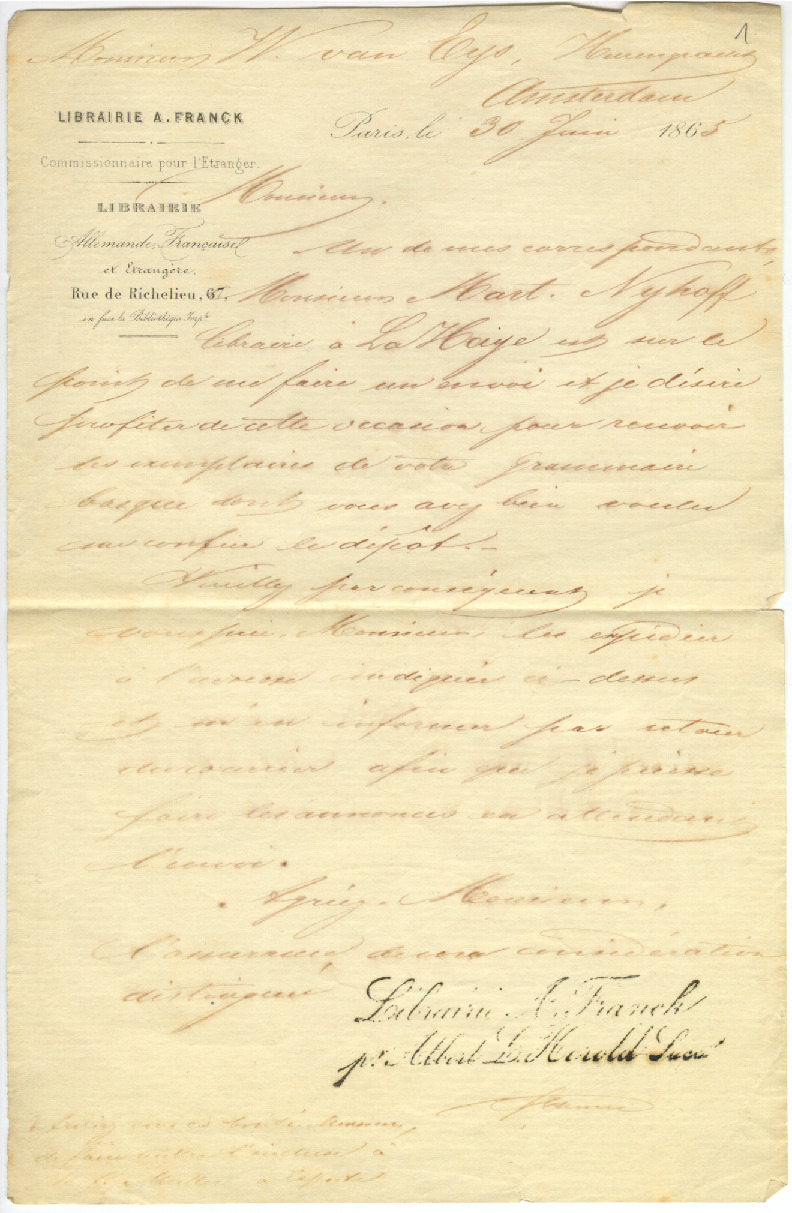 1
Monsieur W. van Eys, Heerengracht
Amsterdam
LIBRAIRIE A. FRANCK
Commissionnaire pour l'Etranger.
LIBRAIRIE
Allemande, Française
et Etrangère.
Rue de Richelieu, 67,
en face la Bibliothèque Imple
Paris, le 30 Juin 1865
Monsieur.
Un de mes correspondants,
Monsieur Mart. Nyhoff
libraire à La Haye est sur le
point de me faire un envoi et je désire
profiter de cette occasion pour recevoir
les exemplaires de votre grammaire
basque dont vous avez bien voulu
me confier le dépôt.-
Veuillez par conséquent je
vous prie, Monsieur, les expédier
à l'adresse indiquée ci-dessus
et m'en informer par retour
du courrier afin que je puisse
faire les annonces en attendant
l'envoi.
Agréez, Monsieur,
l'assurance de ma considération
distinguée
Librairie A. Franck
pr. Albert L. Herold Succr
bonté, Monsieur,
de faire l'incluse à